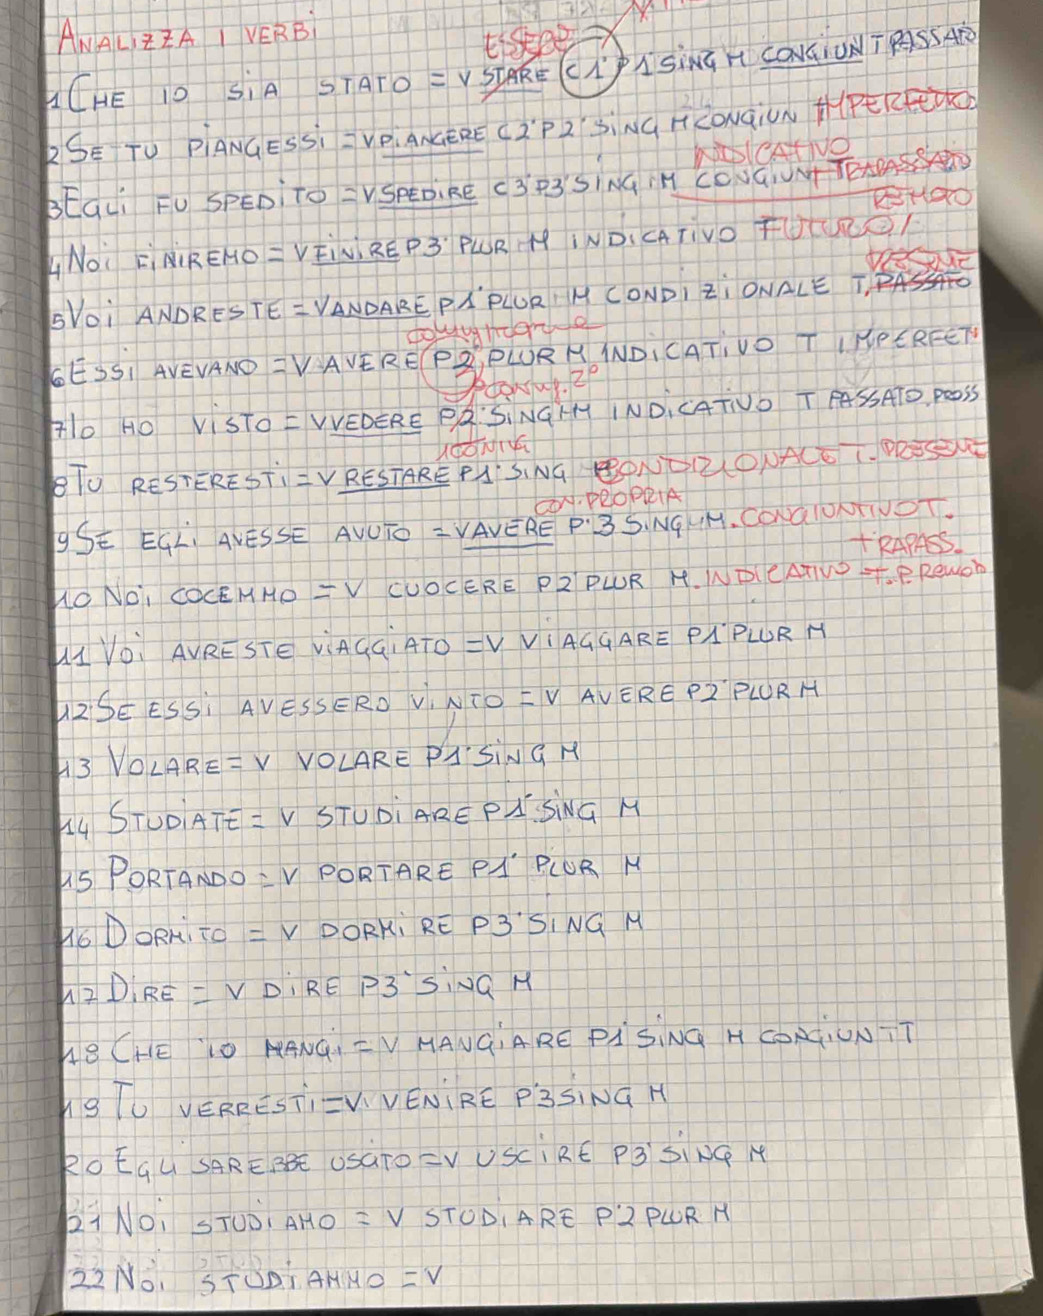 ANALIZZA I VERBI
ESSERE
1 CHE IO SIA STATO = V STARE C1 P1 SING M CONGIUN T PASSATO
2 SE TU PIANGESSI = V PIANGERE C2 P2 SING M CONGIUN IMPERFETTO
INDICATIVO
3 EGLI FU SPEDITO = V SPEDIRE C3 P3 SING M CONGIUNT TRAPASSATO
REMOTO
4 NOI FINIREMO = V FINIRE P3 PLUR M INDICATIVO FUTURO
PRESENTE
5 VOI ANDRESTE = V ANDARE P1 PLUR M CONDIZIONALE T. PASSATO
coniugazione
6 ESSI AVEVANO = V AVERE P2 PLUR M INDICATIVO T IMPERFET
3P coniug. 2°
7 IO HO VISTO = V VEDERE P2 SING M INDICATIVO T PASSATO PROSS
1 CONIUG
8 TU RESTERESTI = V RESTARE P1 SING CONDIZIONALE T. PRESENTE
CON. PROPRIA
9 SE EGLI AVESSE AVUTO = V AVERE P3 SING M. CONGIUNTIVO T.
TRAPASS.
10 NOI COCEMMO = V CUOCERE P2 PLUR M. INDICATIVO T. P. Remoto
11 VOI AVRESTE VIAGGIATO = V VIAGGARE P1 PLUR M
12 SE ESSI AVESSERO VINTO = V AVERE P2 PLUR M
13 VOLARE = V VOLARE P1 SING M
14 STUDIATE = V STUDIARE P1 SING M
15 PORTANDO = V PORTARE P1 PLUR M
16 DORMITO = V DORMIRE P3 SING M
17 DIRE = V DIRE P3 SING M
18 CHE IO MANGI = V MANGIARE P1 SING M CONGIUN T
19 TU VERRESTI = V VENIRE P3 SING M
20 EGLI SAREBBE USCITO = V USCIRE P3 SING M
21 NOI STUDIAMO = V STUDIARE P2 PLUR M
22 NOI STUDIAMMO = V